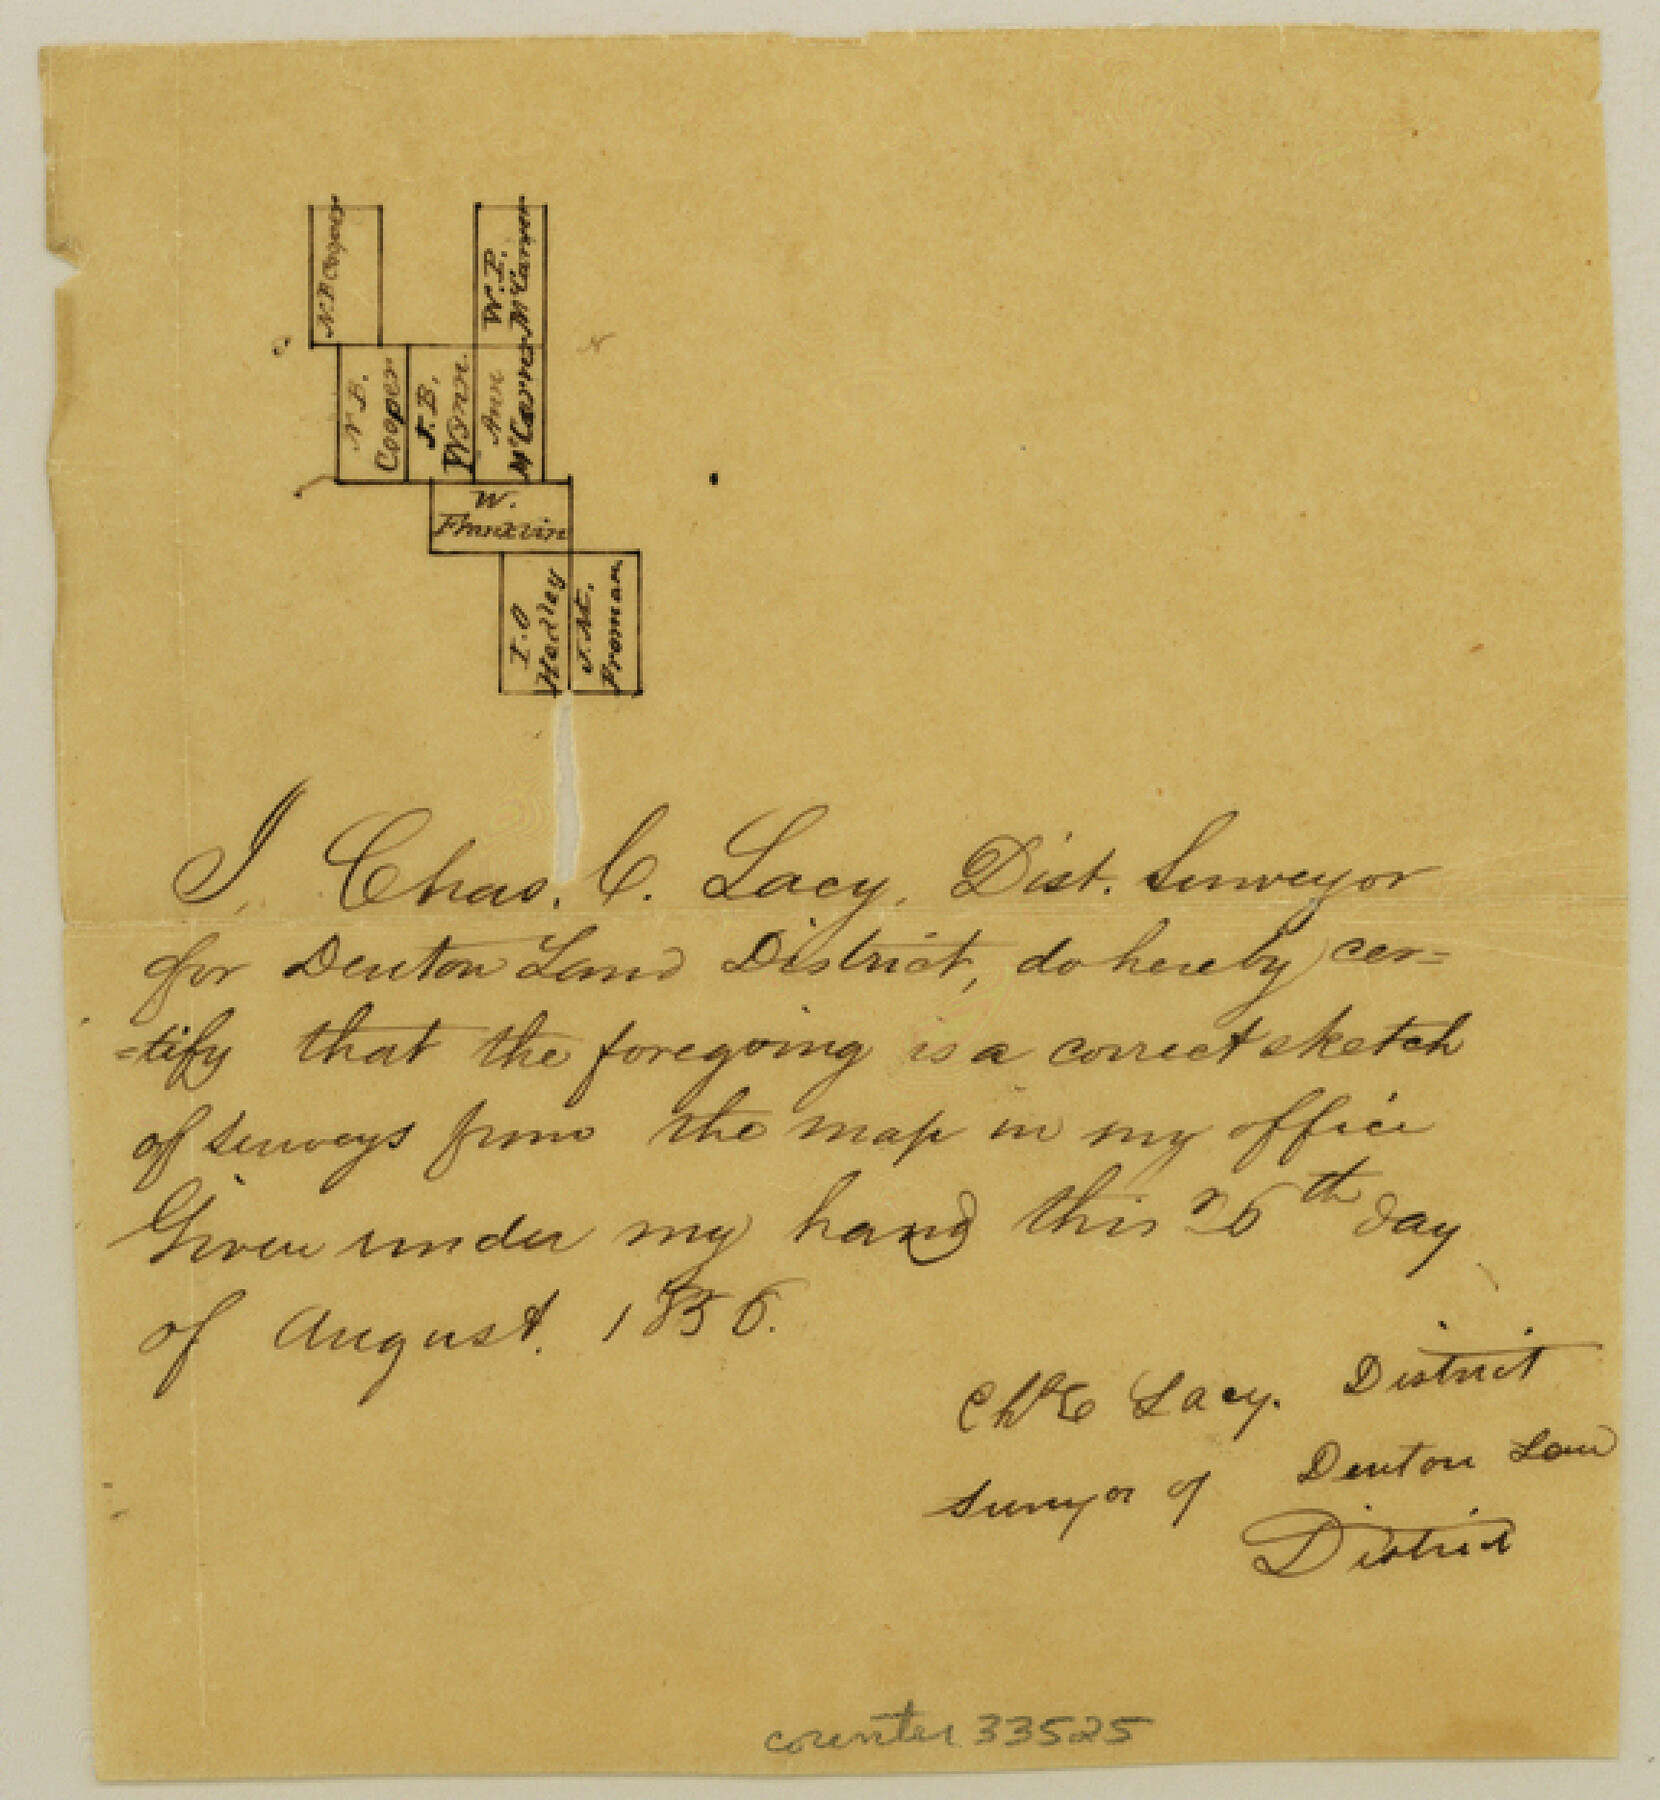 N.B Cooper
W. P.
McCarver
N. B.
Cooper
J. B.
Wynn.
Ann
W.
I. O
Hedley
J. M.
Proman
I, Chas. C. Lacy, Dist. Surveyor
for Denton Land District, do hereby cer=
=tify that the foregoing is a correct sketch
of surveys from the map in my office
Given under my hand this 26th day
of August. 1856.
Lacy. District
Surveyor of Denton Land
District
counter 33525